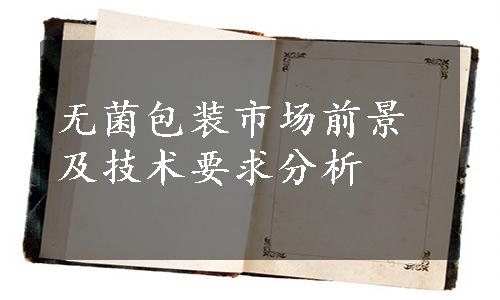 无菌包装市场前景
及技术要求分析